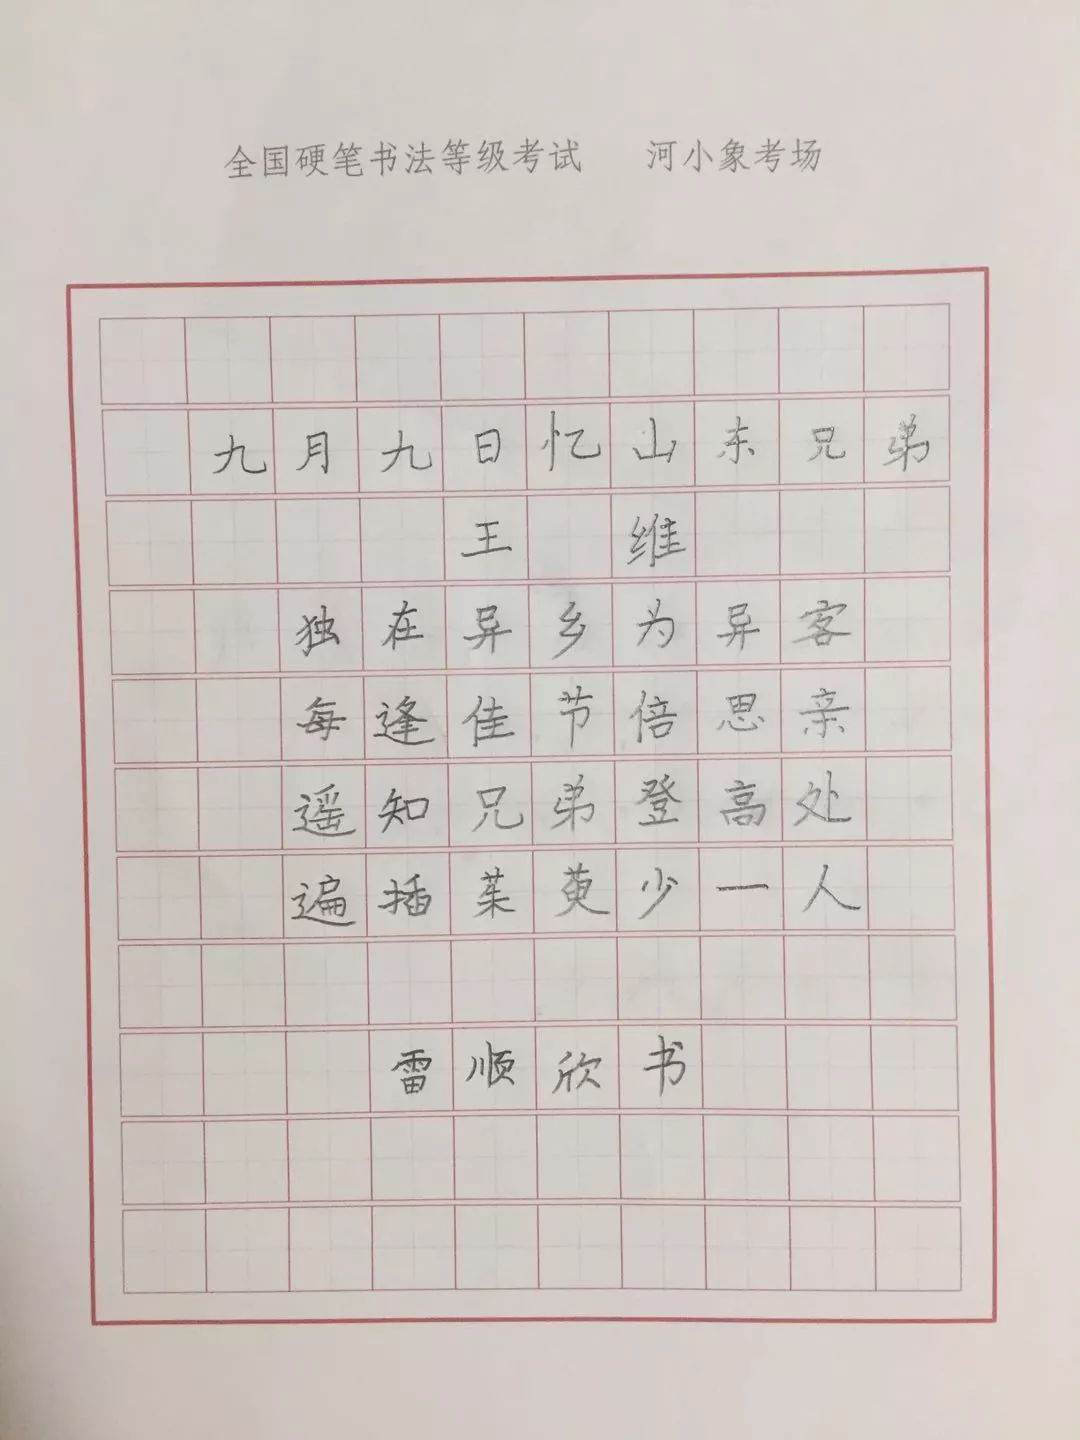 全国硬笔书法等级考试 河小象考场
九月九日忆山东兄弟
王 维
独在异乡为异客
每逢佳节倍思亲
遥知兄弟登高处
遍插茱萸少一人
雷顺欣书